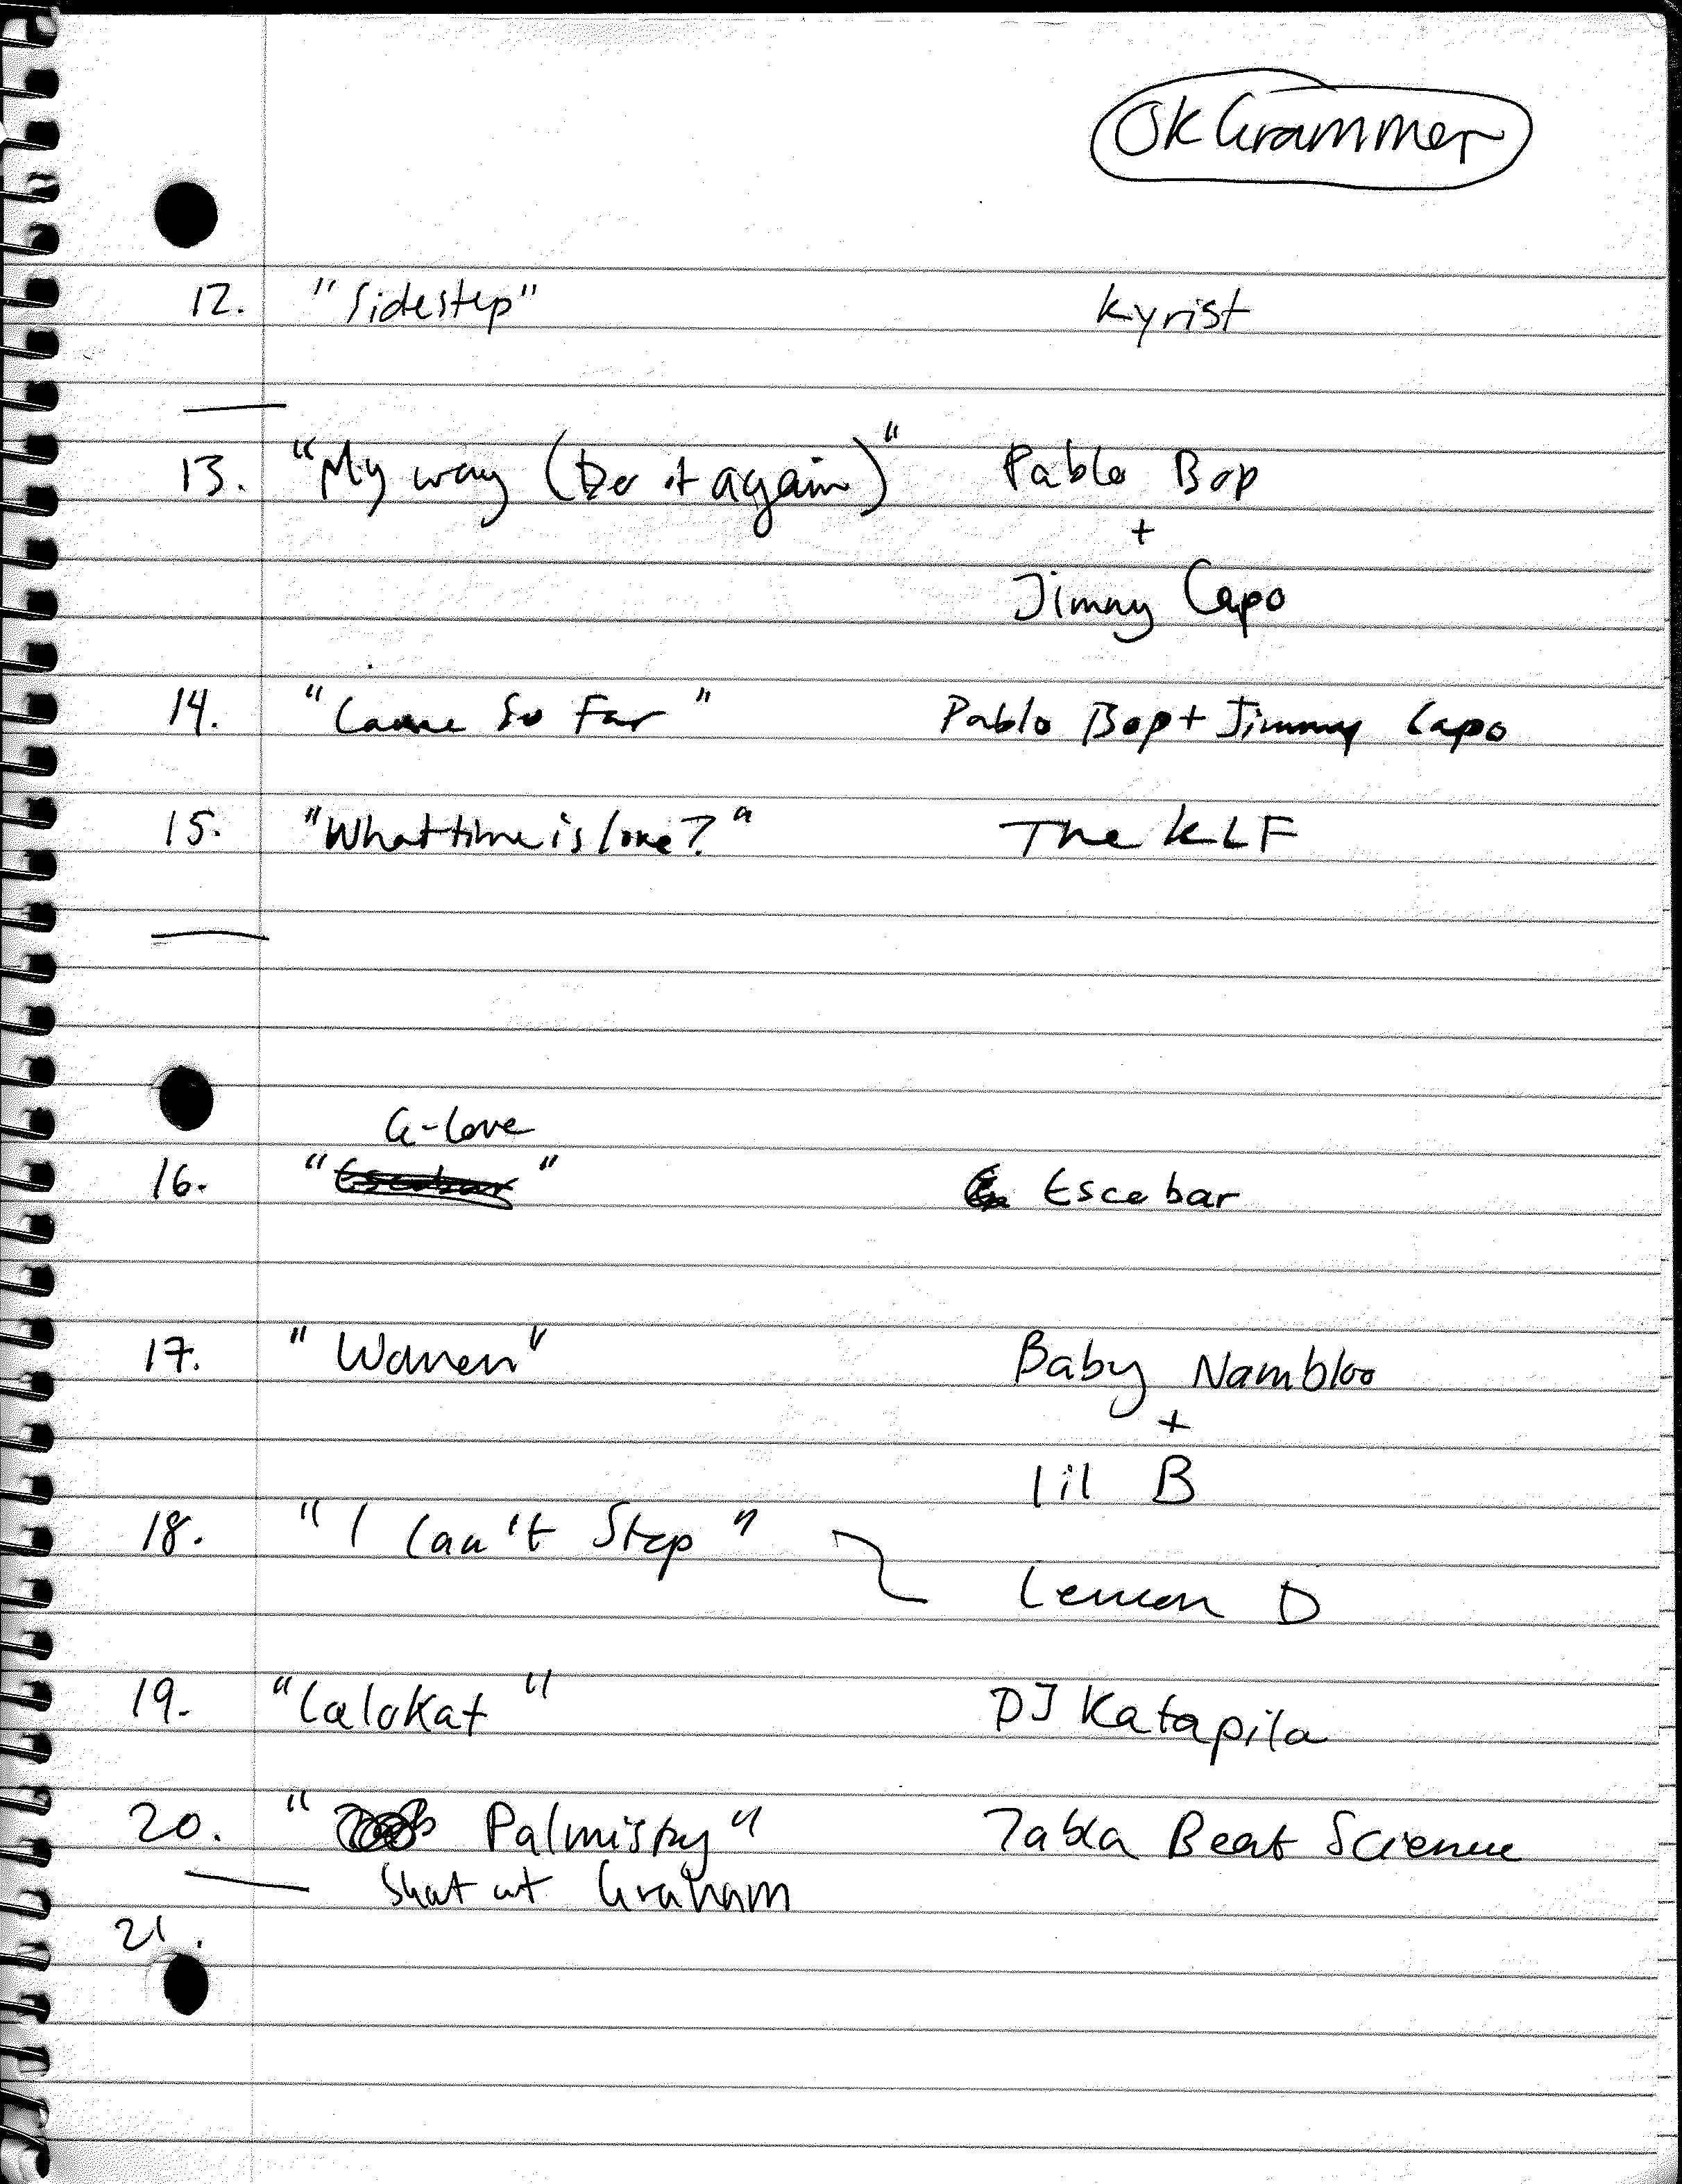 OK Grammer
12. "Sidestep" Kyrist
13. "My way (Do it again)" Pablo Bop
+
Jimmy Capo
14. "Came So Far" Pablo Bop + Jimmy Capo
15. "What time is love?" The KLF
G-Love
16. "Escobar" Escobar
17. "Women" Baby Nambloo
+
lil B
18. "I Can't Stop"
Lemon D
19. "Lalokat" DJ Katapila
20. "Palmistry" Tabla Beat Science
Shot at Graham
21.